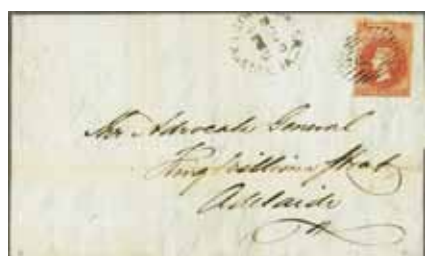 The Advocate General
King William Street
Adelaide